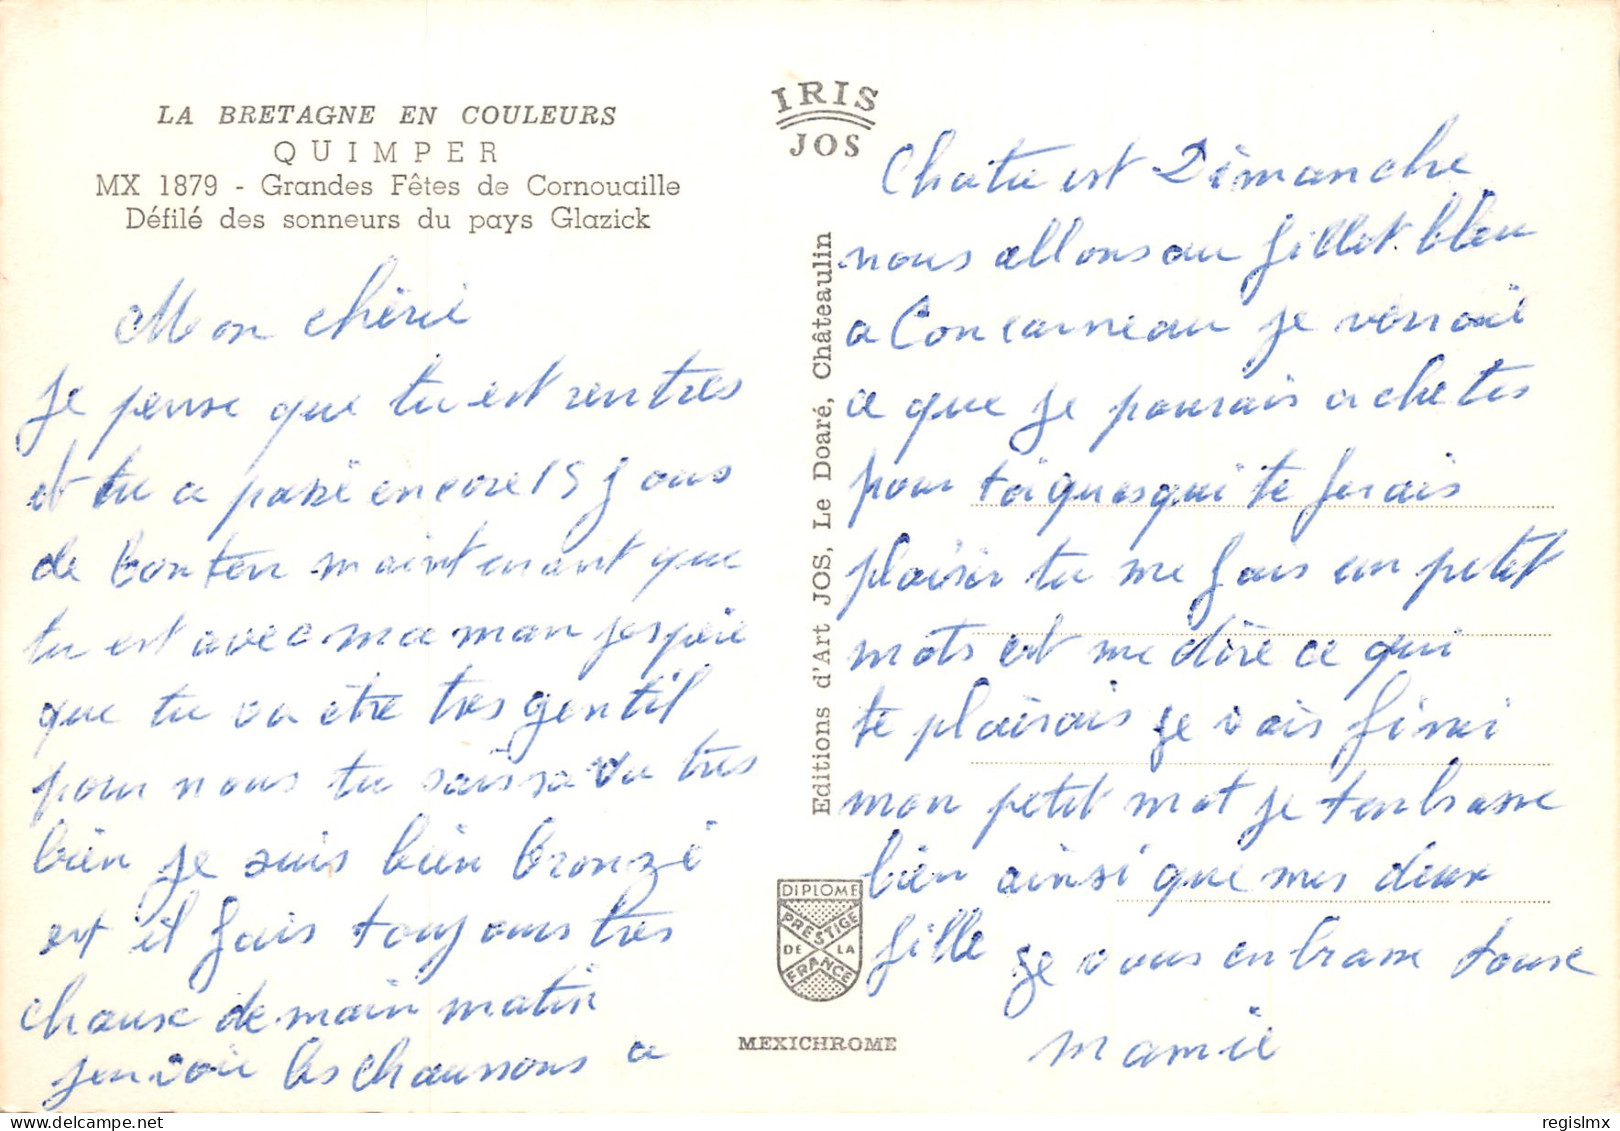 LA BRETAGNE EN COULEURS
QUIMPER
MX 1879 - Grandes Fêtes de Cornouaille
Défilé des sonneurs du pays Glazick
Mon chérie
je pense que tu est rentres
et tu a passé encore 15 jours
de bonten maintenant que
tu est avec maman jespère
que tu va être tres gentil
pour nous tu sais sa va tres
bien je suis bien bronzé
est il fais toujours tres
chause demain matin
jenvoie les chaussons a
IRIS
JOS
Editions d'Art JOS, Le Doaré, Châteaulin
DIPLOME
PRESTIGE
DE LA
FRANCE
MEXICHROME
est Dimanche
nous allons au fillet bleu
a Concarneau je verrai
ce que je pourais achetes
pour toi qui te ferais
plaisir tu me fais un petit
mots est me dire ce qui
te plairais je vais finir
mon petit mot je tenbrasse
bien ainsi que mes deux
fille je vous enbrasse tous
mamie
regislmx